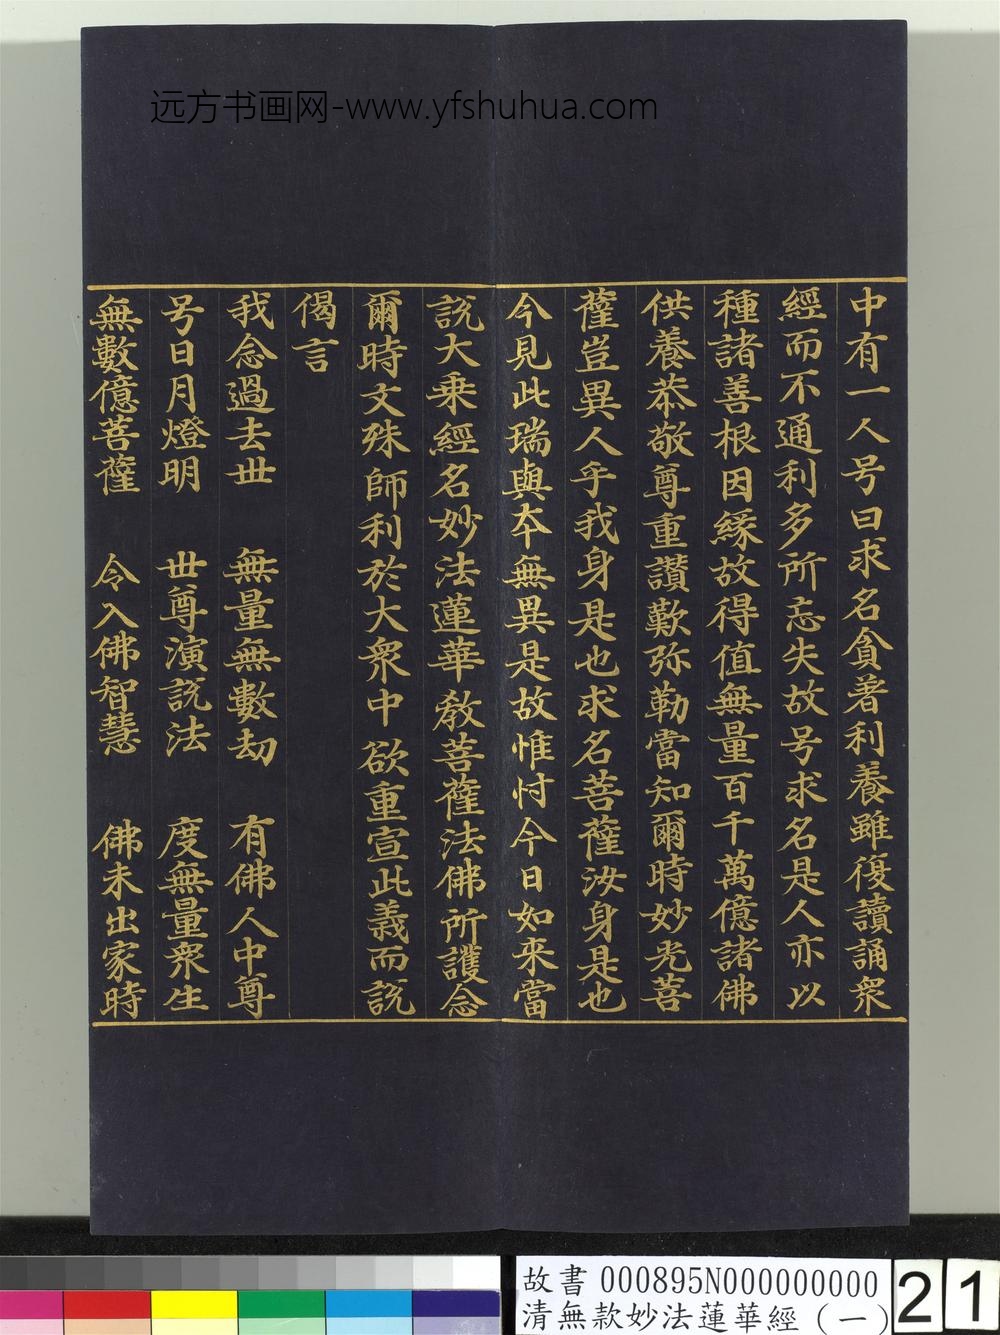 远方书画网-www.yfshuhua.com
中有一人号曰求名貪著利養雖復讀誦衆
經而不通利多所忘失故号求名是人亦以
種諸善根因緣故得值無量百千萬億諸佛
供養恭敬尊重讃歎弥勒當知爾時妙光菩
薩豈異人乎我身是也求名菩薩汝身是也
今見此瑞與本無異是故惟忖今日如来當
說大乗經名妙法蓮華教菩薩法佛所護念
爾時文殊師利於大衆中欲重宣此義而說
偈言
我念過去世 無量無數劫 有佛人中尊
号日月燈明 世尊演說法 度無量衆生
無數億菩薩 令入佛智慧 佛未出家時
故書 000895N000000000
清無款妙法蓮華經(一)
21